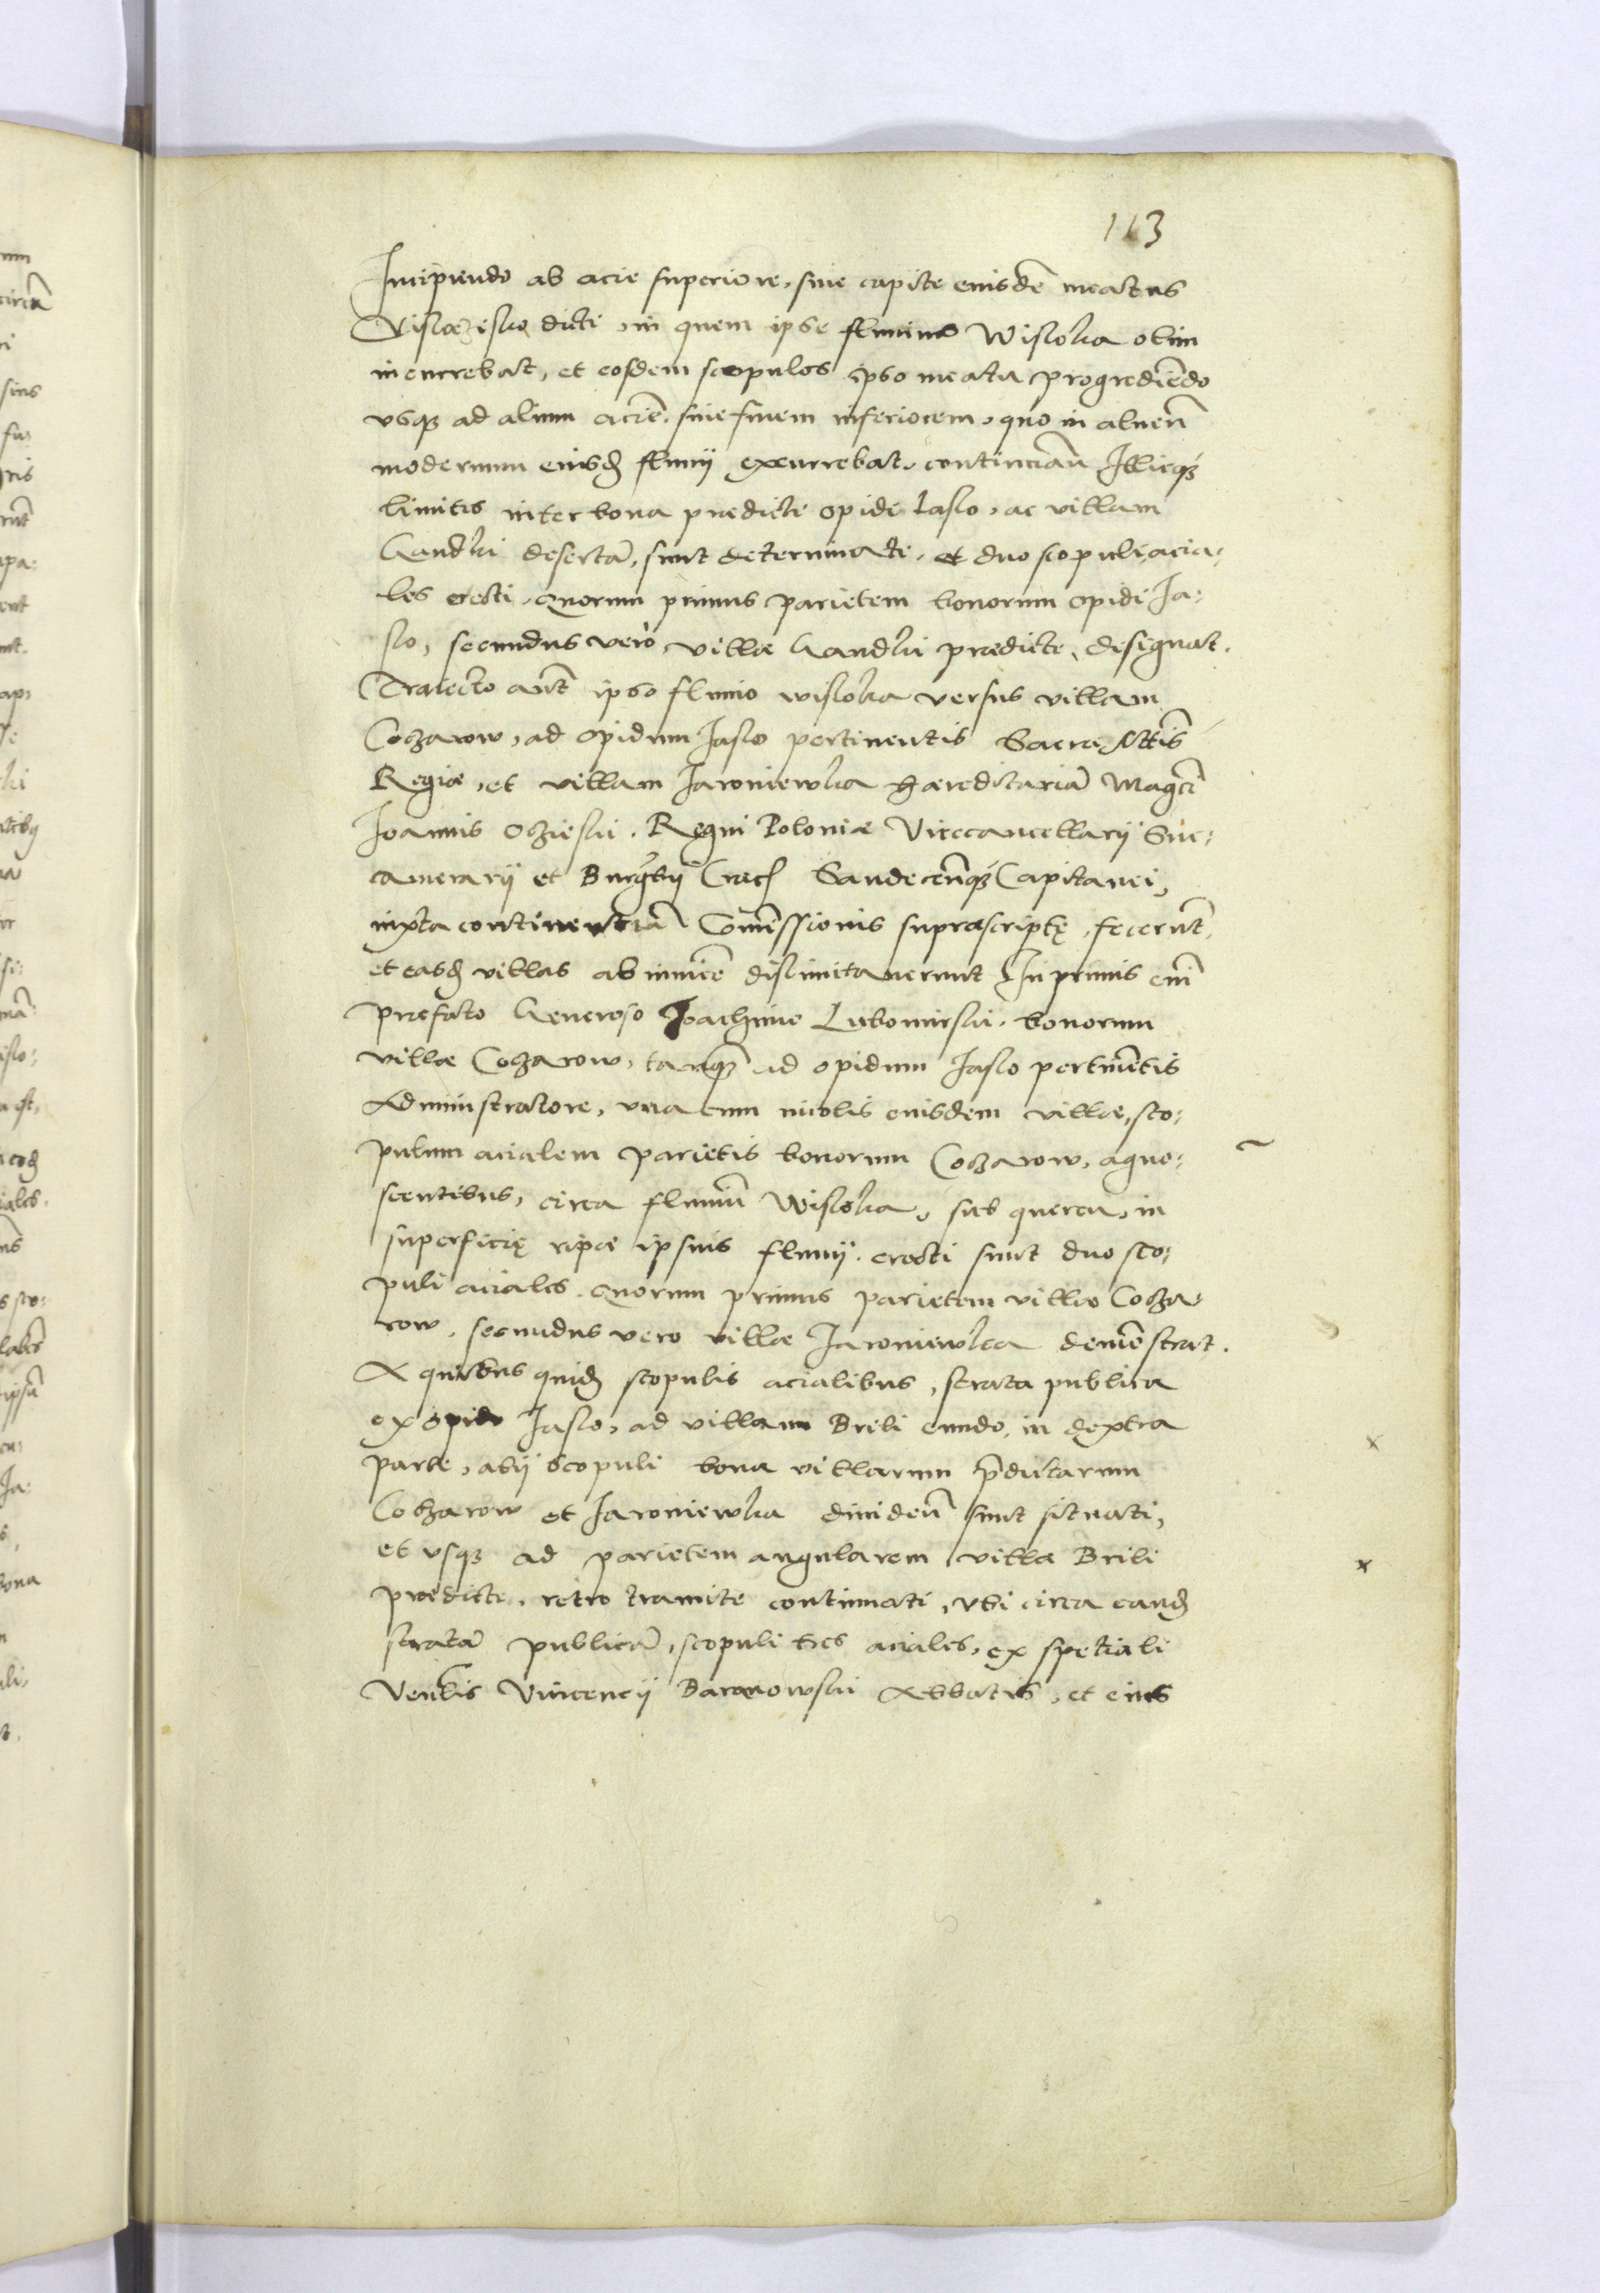 113
Incipiendo ab acie superiore, siue capite eiusdẽ meatus
Visloczisko dicti, in quem ipse fluuius Wisloka olim
incurrebat, et eosdem scopulos ipso meatu progrediẽdo
vsq3 ad alium aciẽ siue finem inferiorem, quo in alueũ
modernum eiusd fluuij excurrebat, continuãn Illicq3
limites inter bona predicti opidi Iaslo, ac villam
Gandki desertã, sunt determinate, et duo scopuli acia-
les erecti, Quorum primus parietem bonorum opidi Ia-
slo, secundus vero, villæ Gandki predicte, designat.
Traiecto aũt ipso fluuio wisloka versus villam
Coczarow, ad opidum Iaslo pertinentis Sacræ Mttis
Regiæ, et villam Iaroniewka hæreditariã Magci
Ioannis Oczieski Regni Poloniæ Vicecancellarij Suc-
camerarij et Burgbij Crac Sandecenq3 Capitanei,
iuxta continentiã Comissionis suprascriptę, fecerũt,
et easd villas ab inuicẽ dislimitauerunt Inprimis enĩ
prefato Generoso Ioachimo Lubomirski, bonorum
villæ Coczarow, tanq3 ad opidum Iaslo pertinẽtis
Administratore, vna cum incolis eiusdem villæ, sco-
pulum acialem parietis bonorum Coczarow, agno-
scentibus, circa fluuiũ Wisloka, sub quercu, in
superficię ripæ ipsius fluuij erecti sunt duo sco-
puli aciales. Quorum primus parietem villæ Cocza-
row, secundus vero villæ Iaroniewka demõstrat.
A quibus quid scopulis acialibus, strata publica
ex opido Iaslo, ad villam Brili eundo, in dextra
parte, alij scopuli bona villarum p̃dictarum
Coczarow et Iaroniewka diuideñ sunt situati,
et vsq3 ad parietem angularem villæ Brili
predicte, retro tramite continuati, vbi circa eand
stratã publicã, scopuli tres aciales, ex speciali
Venlis Vincencij Baranowski Abbatis, et eius